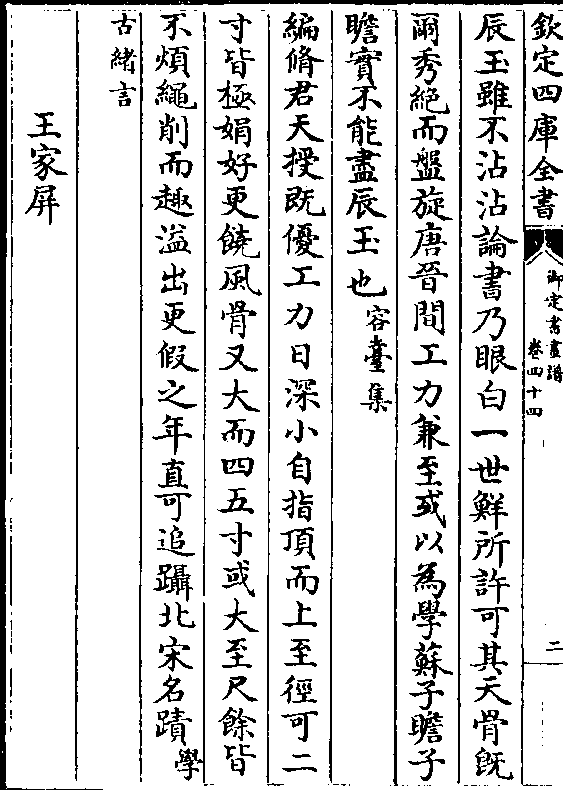 欽定四庫全書
御定書畫譜
卷四十四
二
辰玉雖不沾沾論書乃眼白一世鮮所許可其天骨既
爾秀絕而盤旋唐晉間工力兼至或以為學蘇子瞻子
瞻實不能盡辰玉也容臺集
編脩君天授既優工力日深小自指頂而上至徑可二
寸皆極娟好更饒風骨又大而四五寸或大至尺餘皆
不煩繩削而趣溢出更假之年直可追躡北宋名蹟學
古緒言
王家屏